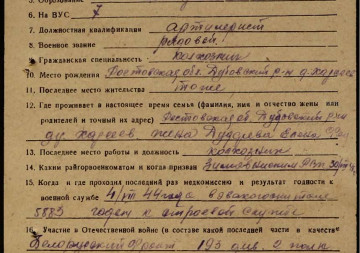 6. На ВУС 7
7. Должностная квалификация артиллерист
8. Военное звание рядовой
9. Гражданская специальность колхозник
10. Место рождения Ростовская обл. Дубовский р-н
11. Последнее место жительства тоже
12. Где проживает в настоящее время семья (фамилия, имя и отчество жены или
родителей и точный их адрес) Ростовская обл. Дубовский р-н
жена
13. Последнее место работы и должность колхозник
14. Каким райгорвоенкоматом и когда призван
15. Когда и где проходил последний раз медкомиссию и результат годности к
военной службе 4/VII 44 года
5883 годен к строевой службе
16. Участие в Отечественной войне (в составе какой последней части и в качестве
Белорусский Фронт 193 див. 2 полк